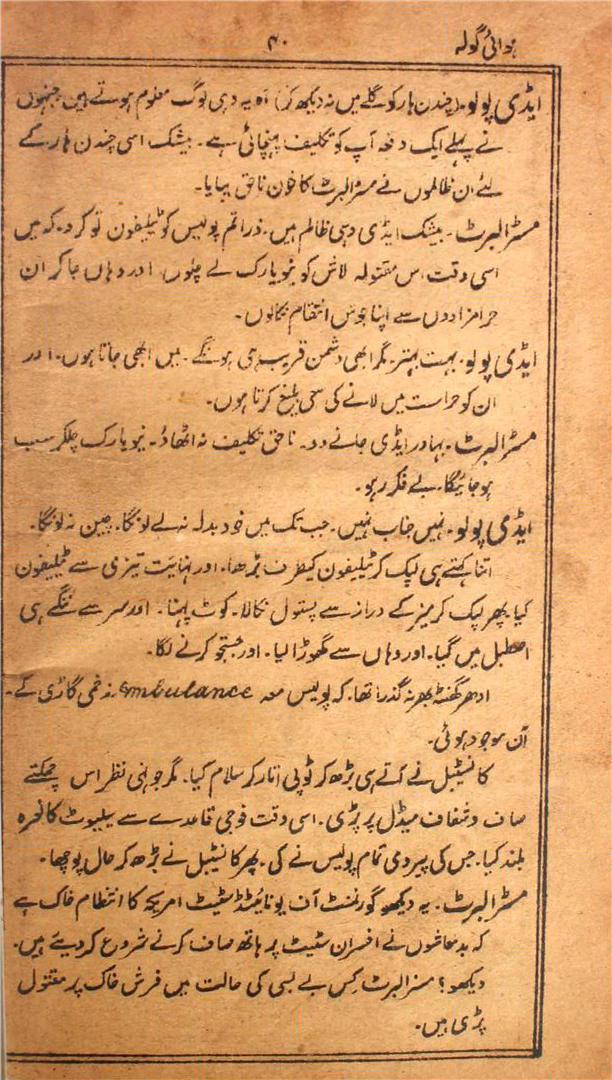 ہوائی گولہ
۴۰
ایڈی پولو۔ (چندن ہار کو گلے میں نہ دیکھ کر) آہ یہ وہی لوگ معلوم ہوتے ہیں جنہوں
نے پہلے ایک دفعہ آپ کو تکلیف پہنچائی ہے۔ بیشک اسی چندن ہار کے
لئے ان ظالموں نے مسز البرٹ کا خون ناحق بہایا۔
مسٹر البرٹ۔ بیشک ایڈی وہی ظالم ہیں۔ ذرا تم پولیس کو ٹیلیفون تو کردو۔ کہ میں
اسی وقت اس مقتولہ لاش کو نیویارک لے چلوں اور وہاں جا کر ان
حرامزادوں سے اپنا جوش انتقام نکالوں۔
ایڈی پولو۔ بہت بہتر۔ مگر ابھی دشمن قریب ہی ہونگے۔ میں ابھی جاتا ہوں۔ اور
ان کو حراست میں لانے کی سعی بلیغ کرتا ہوں۔
مسٹر البرٹ۔ بہادر ایڈی جانے دو۔ ناحق تکلیف نہ اٹھاؤ۔ نیویارک چلکر سب
ہو جائیگا۔ بے فکر رہو۔
ایڈی پولو۔ نہیں جناب نہیں۔ جب تک میں خود بدلہ نہ لے لونگا۔ چین نہ لونگا۔
اتنا کہتے ہی لپک کر ٹیلیفون کیطرف بڑھا۔ اور نہایت تیزی سے ٹیلیفون
کیا۔ پھر لپک کر میز کے دراز سے پستول نکالا۔ کوٹ پہنا۔ اور سر سے ننگے ہی
اصطبل میں گیا۔ اور وہاں سے گھوڑا لیا۔ اور جستجو کرنے لگا۔
ادھر گھنٹہ بھر نہ گذرا تھا۔ کہ پولیس معہ Ambulance زخمی گاڑی کے۔
آن موجود ہوئی۔
کانسٹبل نے آتے ہی بڑھ کر ٹوپی اتار کر سلام کیا۔ مگر جونہی نظر اس چمکتے
صاف و شفاف میڈل پر پڑی۔ اسی وقت فوجی قاعدے سے سیلیوٹ کا نعرہ
بلند کیا۔ جس کی پیروی تمام پولیس نے کی۔ پھر کانسٹبل نے بڑھ کر حال پوچھا۔
مسٹر البرٹ۔ یہ دیکھو گورنمنٹ آف یونائیٹڈ سٹیٹ امریکہ کا انتظام خاک ہے
کہ بدمعاشوں نے افسران سٹیٹ پر ہاتھ صاف کرنے شروع کر دیئے ہیں۔
دیکھو؟ مسز البرٹ کس بے بسی کی حالت میں فرش خاک پر مقتول
پڑی ہیں۔